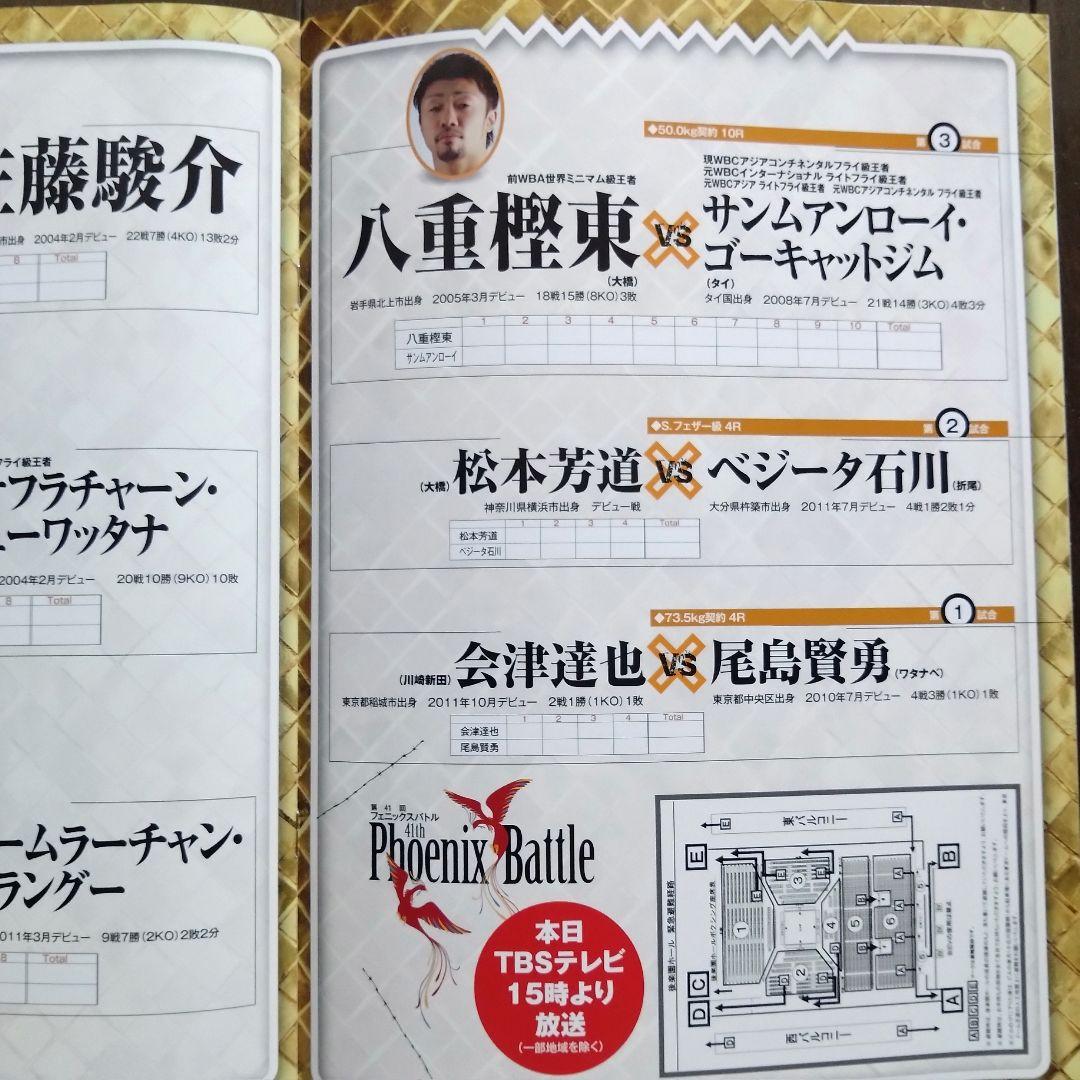 佐藤駿介
市出身 2004年2月デビュー 22戦7勝(4KO)13敗2分
8 Total
フライ級王者
フラチャーン・
ーワッタナ
2004年2月デビュー 20戦10勝(9KO)10敗
8 Total
ームラーチャン・
ラングー
2011年3月デビュー 9戦7勝(2KO)2敗2分
8 Total
◆50.0kg契約 10R
第3試合
前WBA世界ミニマム級王者
八重樫東
(大橋)
岩手県北上市出身 2005年3月デビュー 18戦15勝(8KO)3敗
VS
現WBCアジアコンチネンタルフライ級王者
元WBCインターナショナル ライトフライ級王者
元WBCアジア ライトフライ級王者 元WBCアジアコンチネンタル フライ級王者
サンムアンローイ・
ゴーキャットジム
(タイ)
タイ国出身 2008年7月デビュー 21戦14勝(3KO)4敗3分
1 2 3 4 5 6 7 8 9 10 Total
八重樫東
サンムアンローイ
◆S.フェザー級 4R
第2試合
(大橋) 松本芳道 VS ベジータ石川 (折尾)
神奈川県横浜市出身 デビュー戦
大分県杵築市出身 2011年7月デビュー 4戦1勝2敗1分
1 2 3 4 Total
松本芳道
ベジータ石川
◆73.5kg契約 4R
第1試合
(川崎新田) 会津達也 VS 尾島賢勇 (ワタナベ)
東京都稲城市出身 2011年10月デビュー 2戦1勝(1KO)1敗
東京都中央区出身 2010年7月デビュー 4戦3勝(1KO)1敗
1 2 3 4 Total
会津達也
尾島賢勇
第41回
フェニックスバトル
41th
Phoenix Battle
本日
TBSテレビ
15時より
放送
(一部地域を除く)
後楽園ホール 緊急避難経路
後楽園ホールボクシング座席表
東バルコニー
西バルコニー
A
B
C
D
E
1
2
3
4
5
6